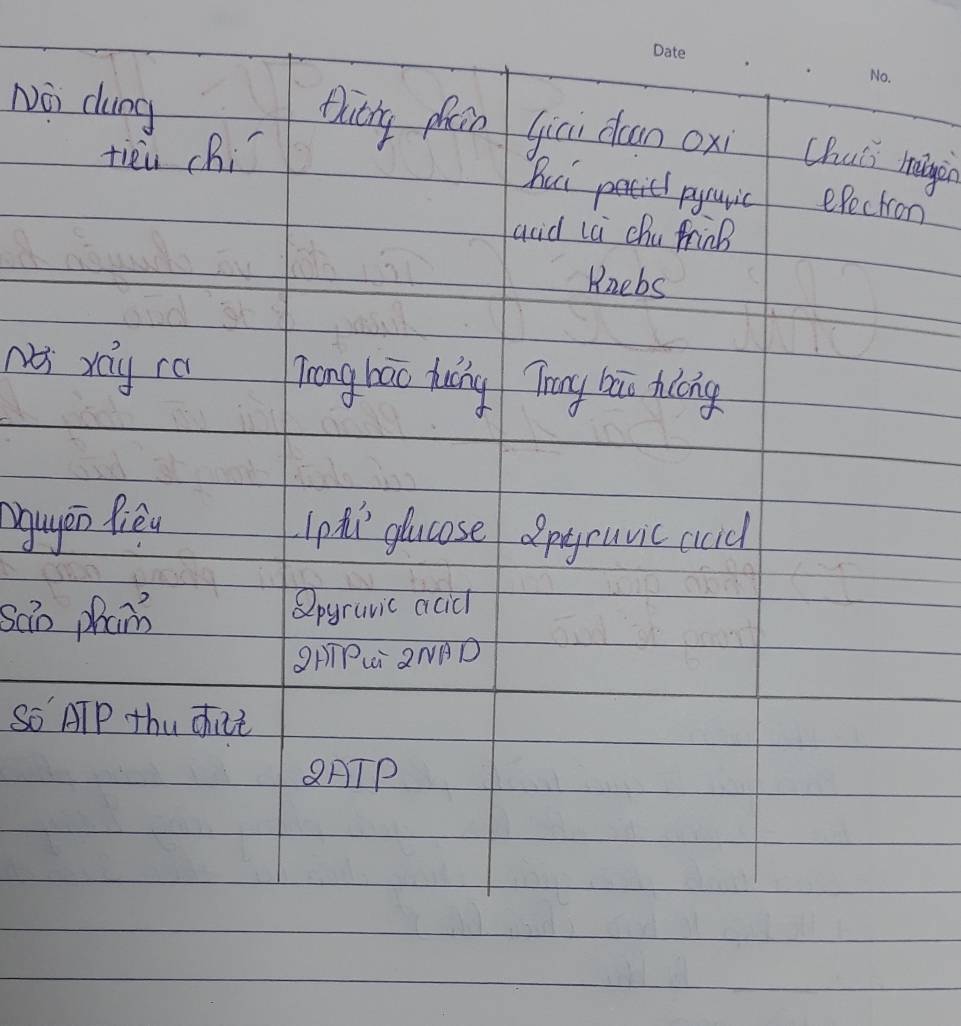 Date
No.
Nội dung
tiêu chí
Đường phân
Giai đoạn oxi
hoá pyruvic
acid và chu trình
Krebs
Chuỗi truyền
electron
Nơi xảy ra
Trong bào tương
Trong bào tương
Nguyên liệu
1ptử glucose
2pyruvic acid
Sản phẩm
2pyruvic acid
2ATP và 2NAD
Số ATP thu được
2ATP